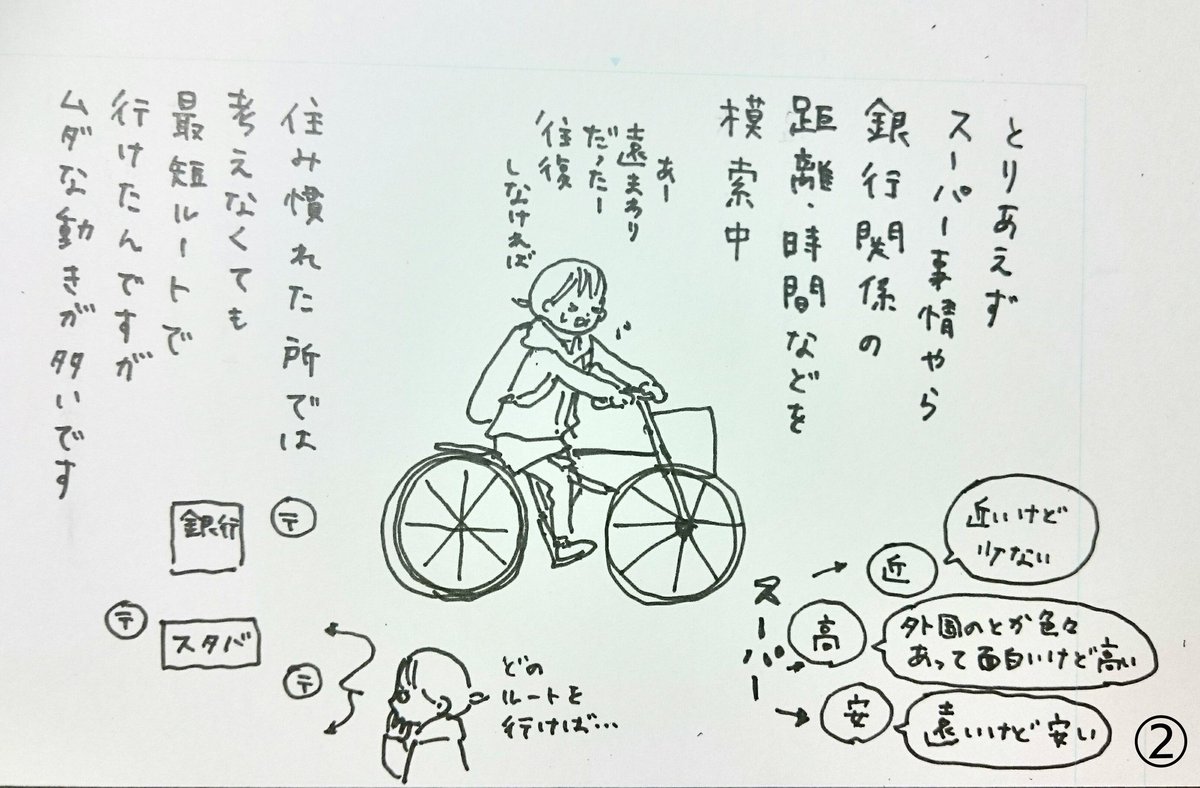 とりあえず
スーパー事情やら
銀行関係の
距離・時間などを
模索中
あー
遠まわり
だったー
往復
しなければ
住み慣れた所では
考えなくても
最短ルートで
行けたんですが
ムダな動きが多いです
スーパー
近
近いけど
少ない
高
外国のとか色々
あって面白いけど高い
安
遠いけど安い
銀行
〒
〒
スタバ
〒
どの
ルートを
行けば…
②